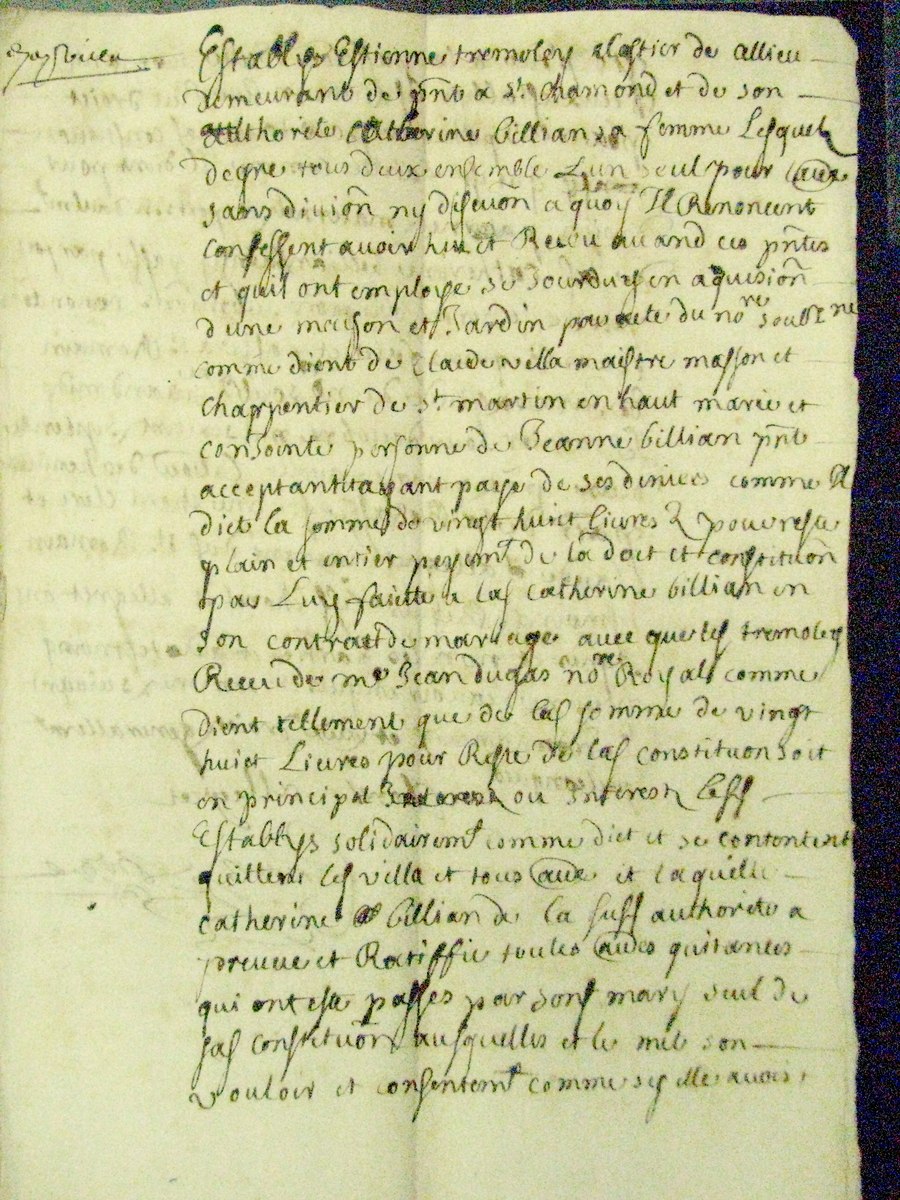 Establys Estienne tremoley de allieu
demeurant de pnt a st chamond et de son
authorete Catherine billian sa femme Lesquelz
de gre tous deux ensemble Lun seul pour laue
sans division ny discuōn a quoy Il Renoncent
confessent avoir heu et Receu avand ces pntes
et quil ont employe se jourduy en aquisiōn
d'une maison et Jardin par acte du nore soubzne
comme dient de Claude villa maistre masson et
charppentier de st martin en haut marie et
conjointe personne de Jeanne billian pnt
acceptant et ayant paye de ses deniers comme Il
dict la somme de vingt huict livres pour reste
plain et entier peyemt de la doct et constituōn
par Luy faicte a lad catherine billian en
son contract de mariage avec que led tremoley
Receu de me Jean dugas nore Royal comme
dient tellement que de lad somme de vingt
huict Livres pour Reste de lad constituon soit
en principal ou Interestz lesd
Establys solidairemt comme dict et se contentent
quittent led villa et tous aue et laquelle
catherine billian de la susd authorete a
preuve et Ratiffie toutes aues quitances
qui ont este passes par sond mary seul de
sad constituōn ausquelles et le met son
vouloir et consentemt comme sy elle avoit